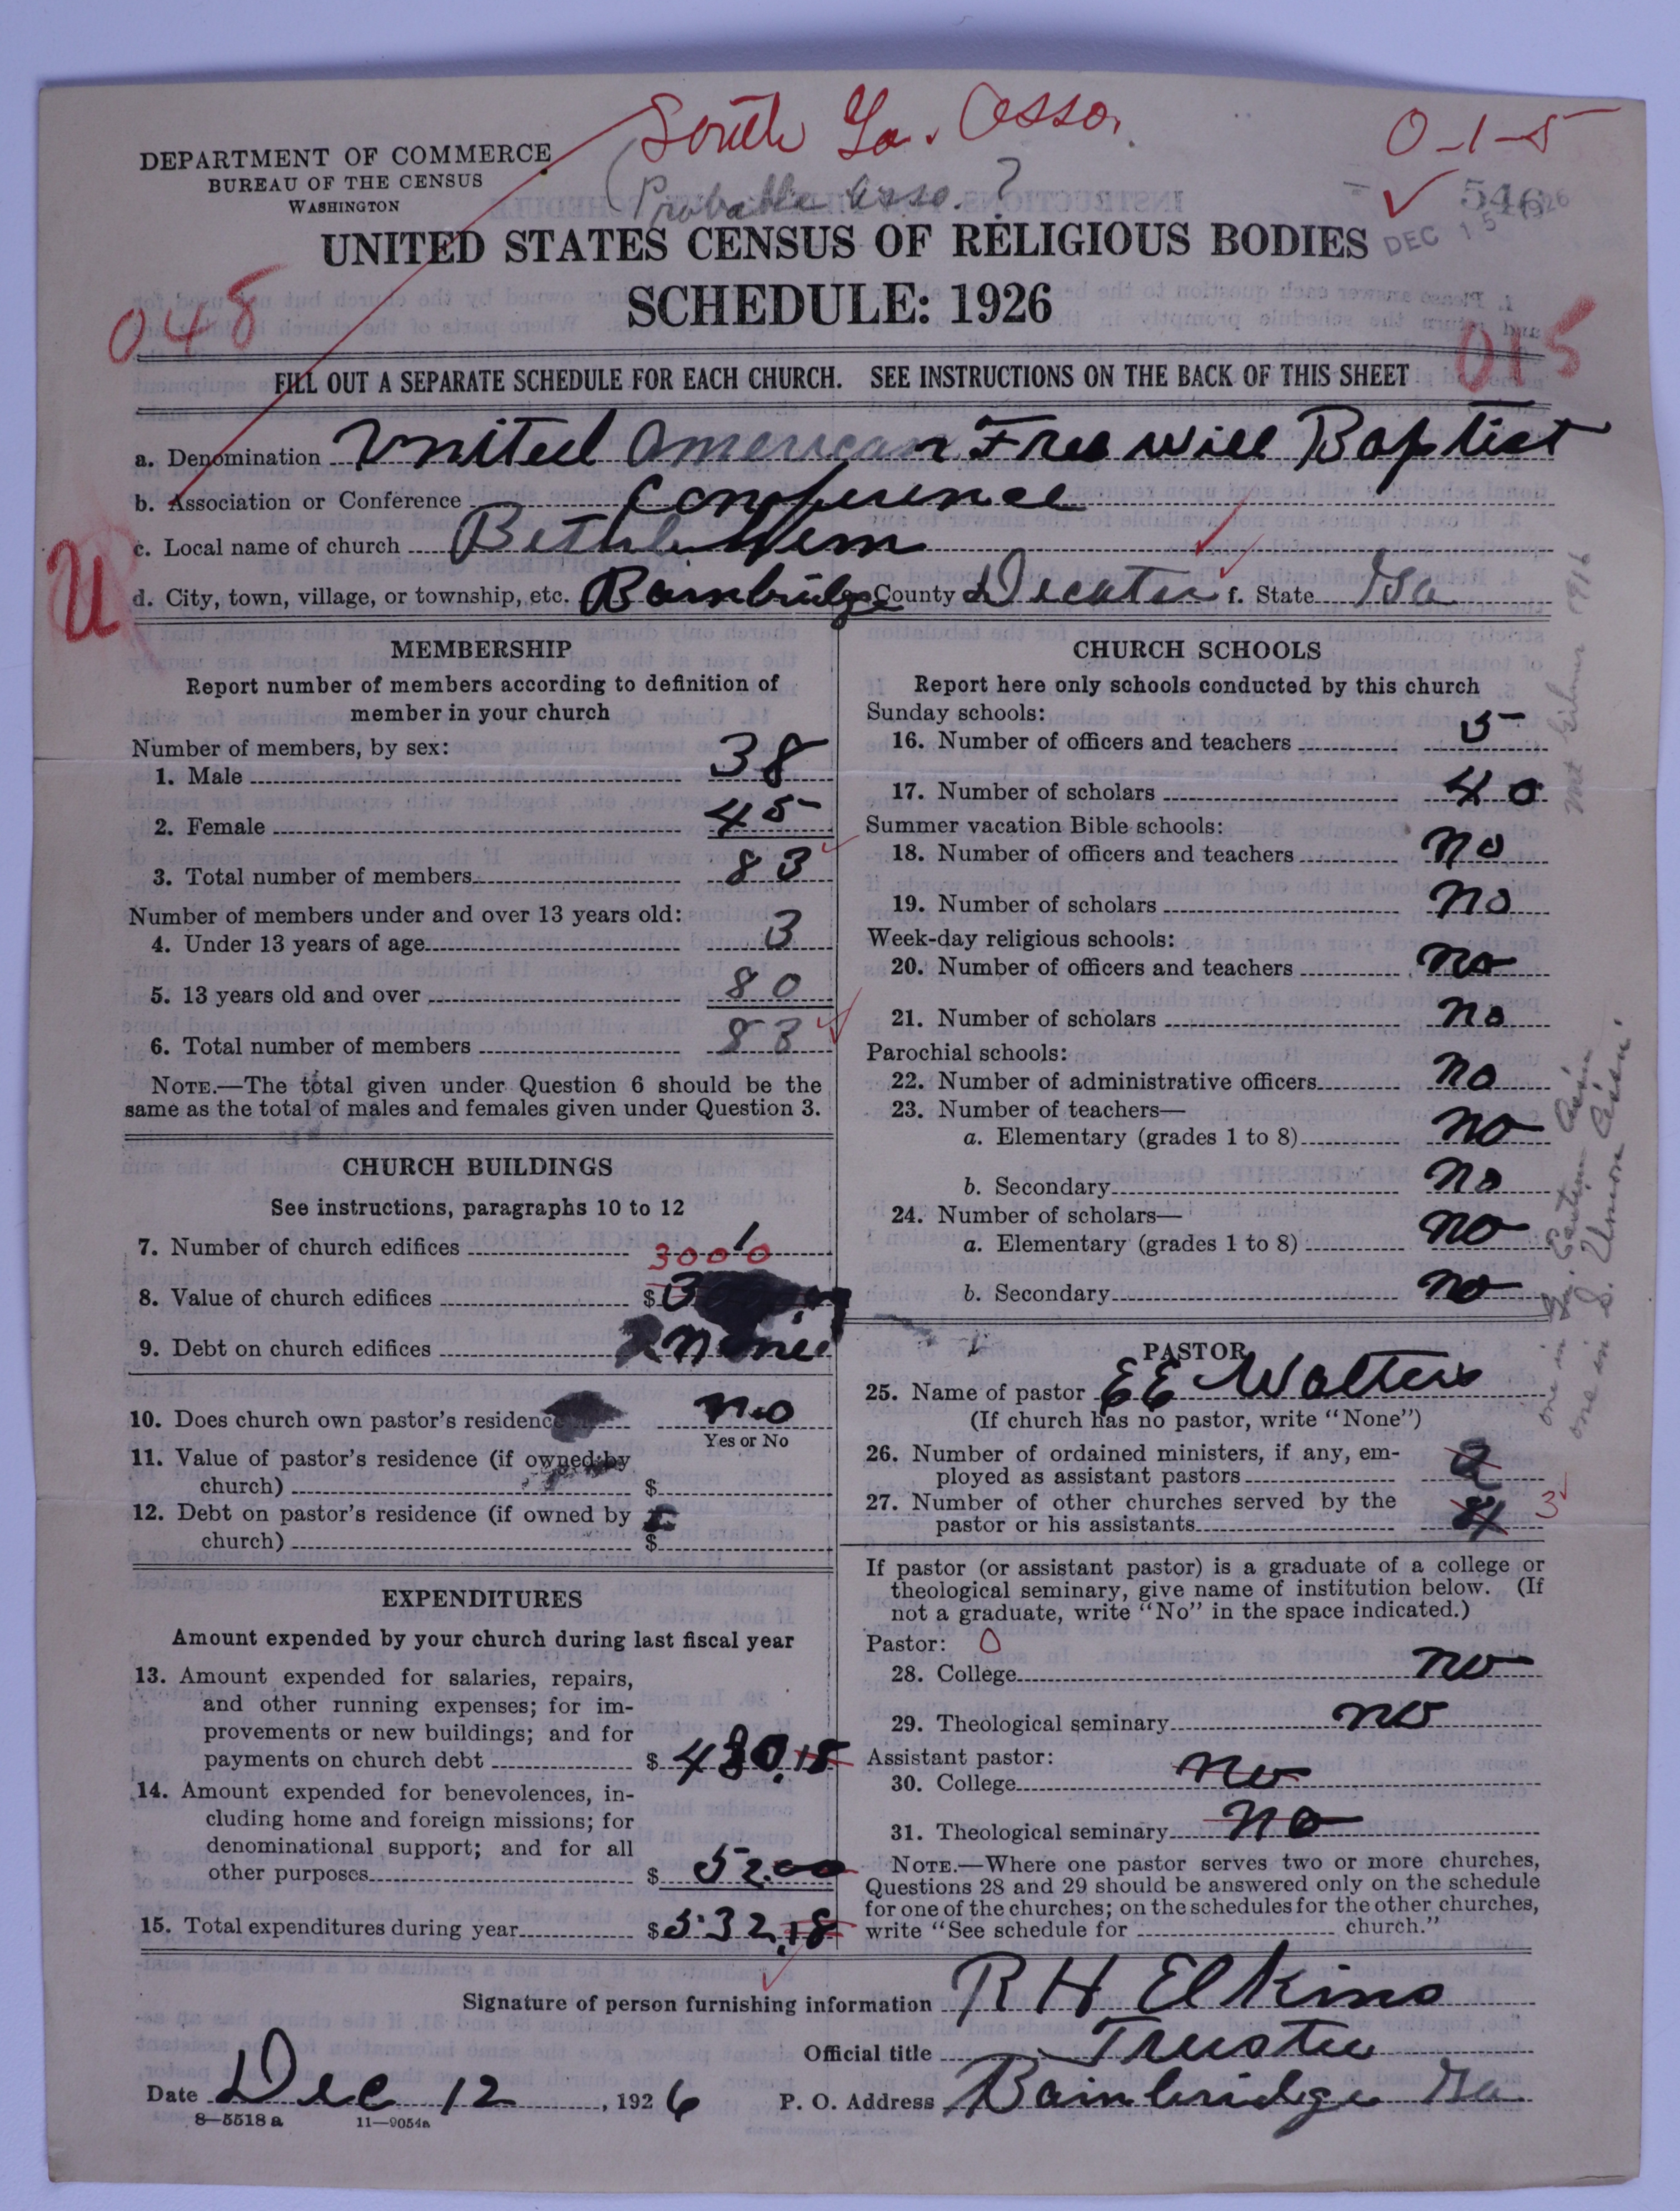 South Ga. Asso.
(Probable Asso.?
0-1-5
546
DEC 15 1926
DEPARTMENT OF COMMERCE
BUREAU OF THE CENSUS
WASHINGTON
UNITED STATES CENSUS OF RELIGIOUS BODIES
SCHEDULE: 1926
048
015
FILL OUT A SEPARATE SCHEDULE FOR EACH CHURCH. SEE INSTRUCTIONS ON THE BACK OF THIS SHEET
a. Denomination United American Free Will Baptist
b. Association or Conference Conference
c. Local name of church Bethlehem
U
d. City, town, village, or township, etc. Bainbridge County Decatur f. State Ga
MEMBERSHIP
Report number of members according to definition of
member in your church
Number of members, by sex:
1. Male 38
2. Female 45
3. Total number of members 83
Number of members under and over 13 years old:
4. Under 13 years of age 3
5. 13 years old and over 80
6. Total number of members 83
NOTE.—The total given under Question 6 should be the
same as the total of males and females given under Question 3.
CHURCH BUILDINGS
See instructions, paragraphs 10 to 12
7. Number of church edifices 1
3000
8. Value of church edifices $
9. Debt on church edifices none
10. Does church own pastor's residence no
Yes or No
11. Value of pastor's residence (if owned by
church) $
12. Debt on pastor's residence (if owned by
church) $
EXPENDITURES
Amount expended by your church during last fiscal year
13. Amount expended for salaries, repairs,
and other running expenses; for im-
provements or new buildings; and for
payments on church debt $ 480.18
14. Amount expended for benevolences, in-
cluding home and foreign missions; for
denominational support; and for all
other purposes $ 52.00
15. Total expenditures during year $ 532.18
CHURCH SCHOOLS
Report here only schools conducted by this church
Sunday schools:
16. Number of officers and teachers 5
17. Number of scholars 40
Summer vacation Bible schools:
18. Number of officers and teachers no
19. Number of scholars no
Week-day religious schools:
20. Number of officers and teachers no
21. Number of scholars no
Parochial schools:
22. Number of administrative officers no
23. Number of teachers—
a. Elementary (grades 1 to 8) no
b. Secondary no
24. Number of scholars—
a. Elementary (grades 1 to 8) no
b. Secondary no
PASTOR
25. Name of pastor E E Walters
(If church has no pastor, write "None")
26. Number of ordained ministers, if any, em-
ployed as assistant pastors 2
27. Number of other churches served by the
pastor or his assistants 4 3
If pastor (or assistant pastor) is a graduate of a college or
theological seminary, give name of institution below. (If
not a graduate, write "No" in the space indicated.)
Pastor: 0
28. College no
29. Theological seminary no
Assistant pastor:
30. College no
31. Theological seminary no
NOTE.—Where one pastor serves two or more churches,
Questions 28 and 29 should be answered only on the schedule
for one of the churches; on the schedules for the other churches,
write "See schedule for church."
Signature of person furnishing information R H Elkins
Official title Trustee
Date Dec 12, 1926 P. O. Address Bainbridge Ga
8—5518 a 11—9054a
1916
one in Ga. Eastern Ass'n
one in S. Union Ass'n